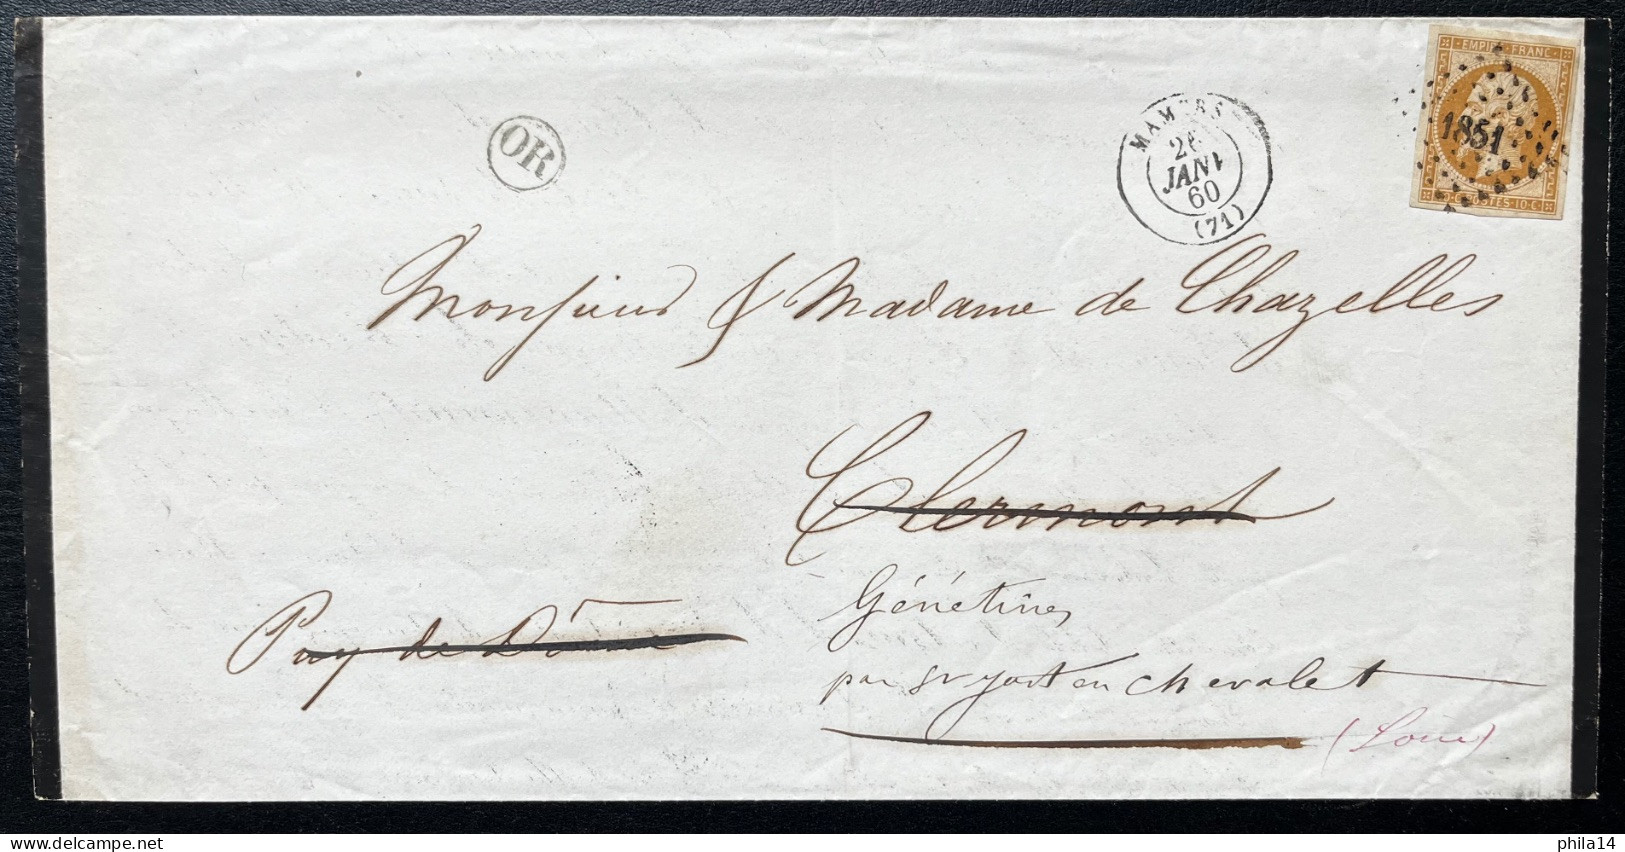 EMPIRE FRANC
1851
10 C. POSTES 10 C.
MAMERS
26
JANV
60
(71)
OR
Monsieur & Madame de Chazelles
Clermont
Puy de Dôme
Génétines
par St Just en Chevalet
(Loire)
phila14